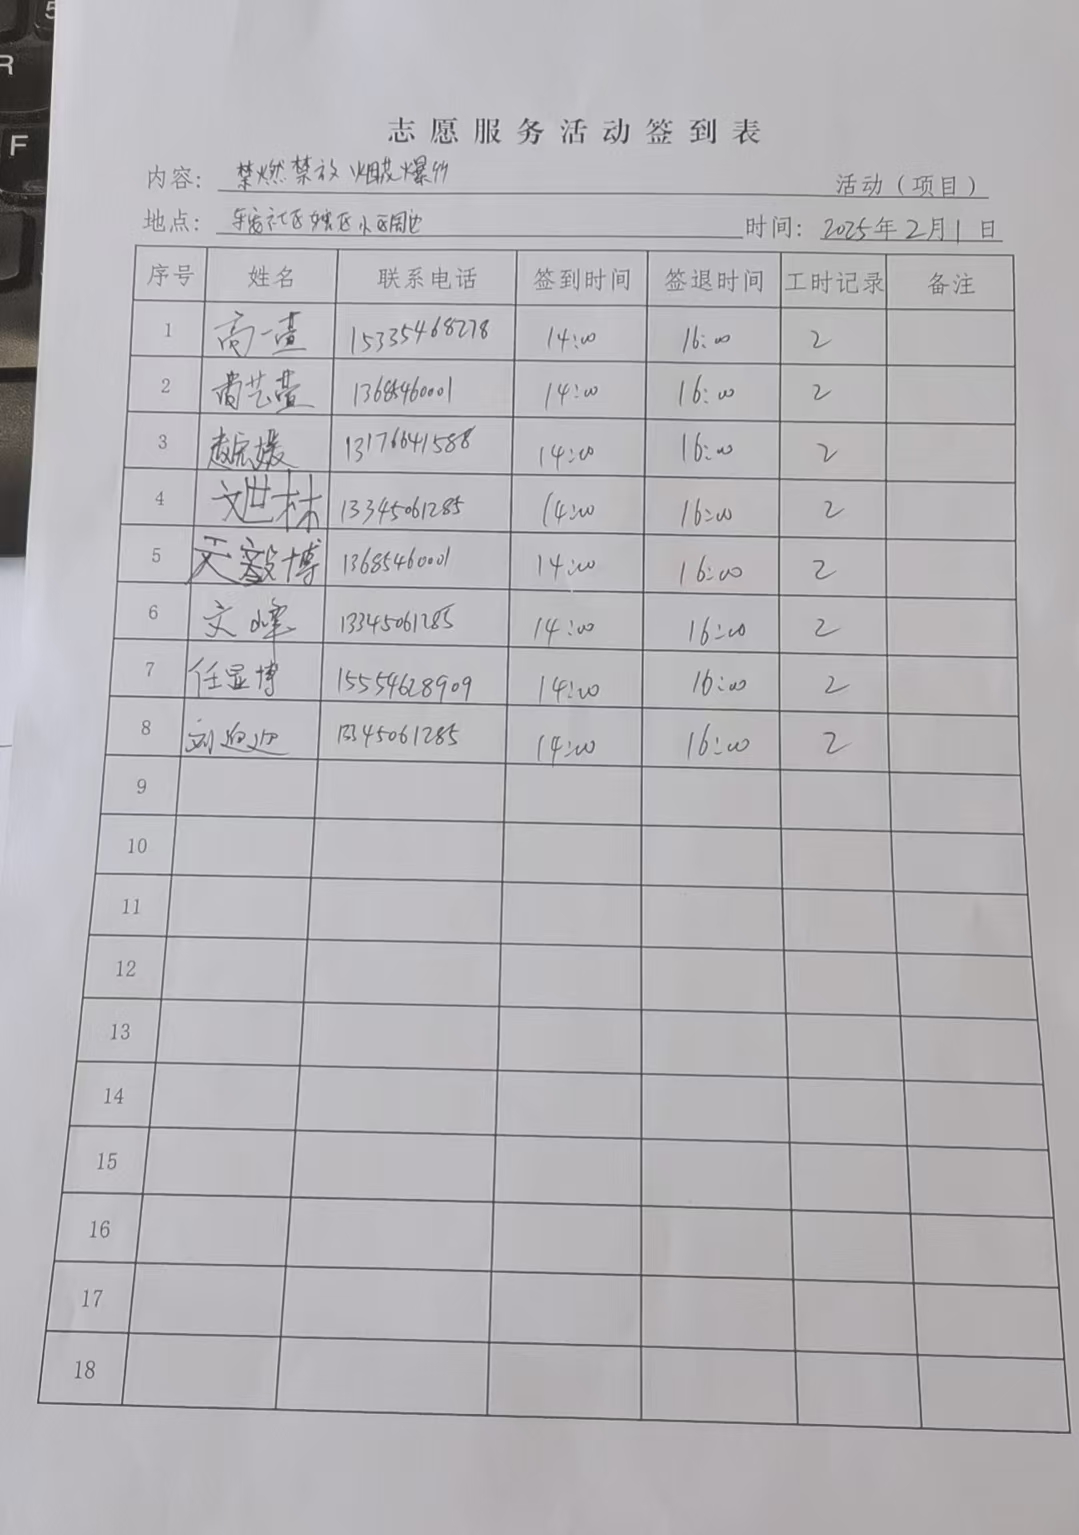 志愿服务活动签到表
内容： 禁燃禁放烟花爆竹 活动（项目）
地点： 社区辖区小区周边 时间： 2025年2月1日
序号 姓名 联系电话 签到时间 签退时间 工时记录 备注
1 高一萱 15335468278 14:00 16:00 2
2 艺萱 13685460001 14:00 16:00 2
3 赵宏媛 13176641588 14:00 16:00 2
4 文世林 13345061285 14:00 16:00 2
5 天毅博 13685460001 14:00 16:00 2
6 文峰 13345061285 14:00 16:00 2
7 任显博 15554628909 14:00 16:00 2
8 刘迎迎 13345061285 14:00 16:00 2
9
10
11
12
13
14
15
16
17
18
R
F
5